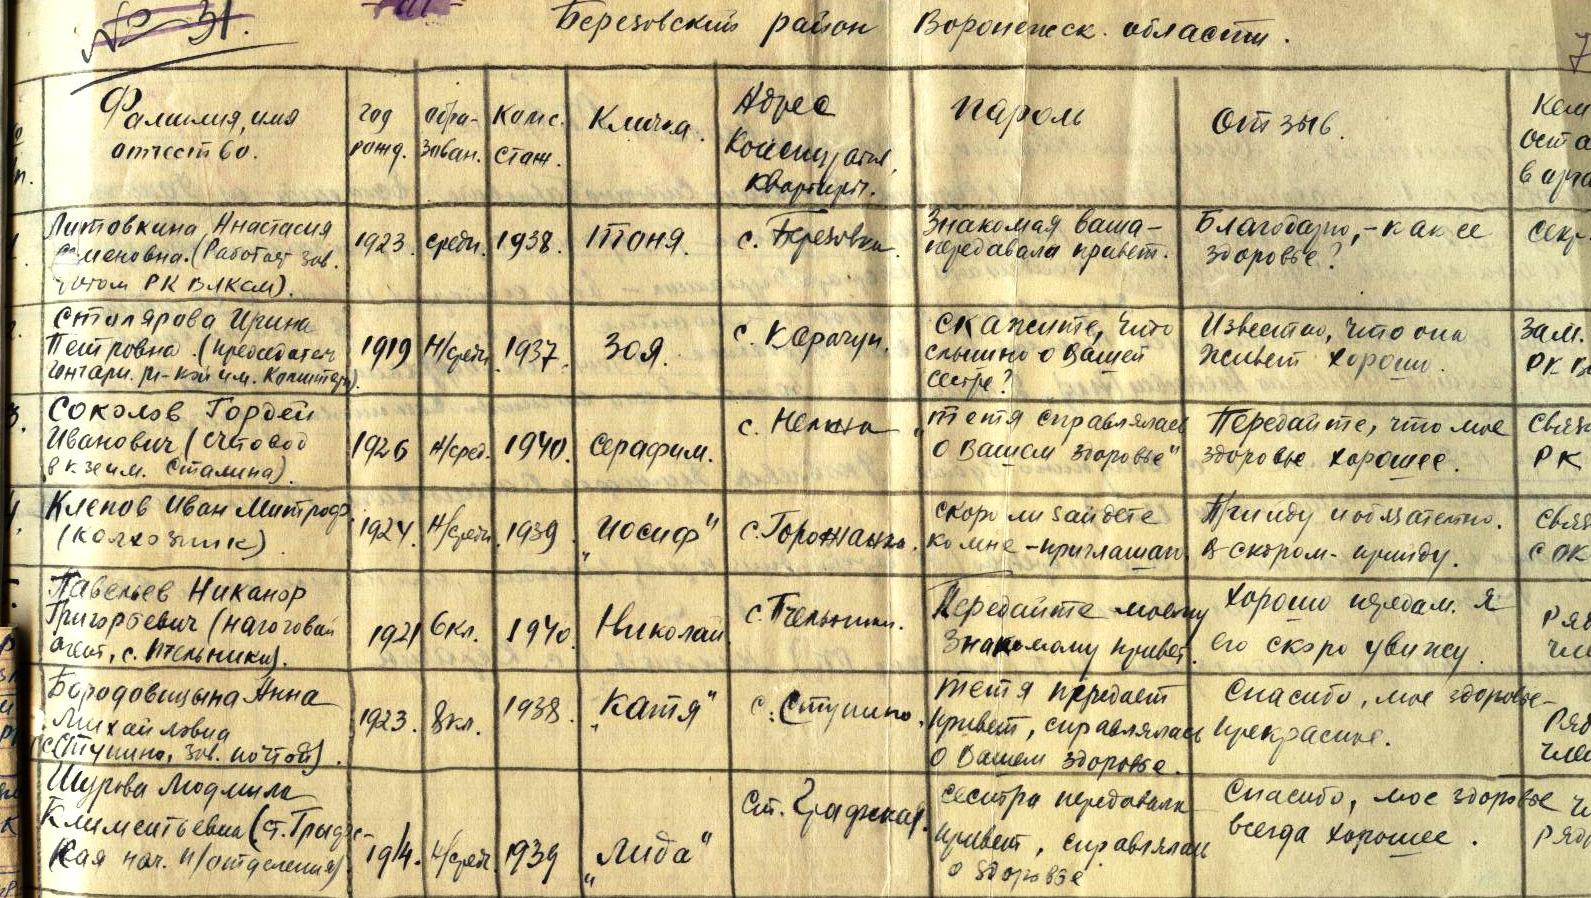 № 31.
Березовский район Воронежск. области.
7
Фамилия, имя
отчество.
год
рожд.
обра-
зован.
Комс.
стаж.
Кличка.
Адрес
Конспирати
квартиры.
пароль
отзыв.
Кем
оста
в орга
п.
1.
Литовкина Анастасия
Семеновна. (Работает зав.
учетом РК ВЛКСМ).
1923.
средн.
1938.
Таня.
с. Березовка
Знакомая ваша -
передавала привет.
Благодарю, - как ее
здоровье?
секр.
2.
Столярова Ирина
Петровна. (председатель
1919
н/средн.
1937.
Зоя.
с. Карачун.
скажите, что
слышно о Вашей
сестре?
Известно, что она
живет хорошо.
Зам.
РК В
3.
Соколов Гордей
Иванович (счетовод
в к-зе им. Сталина).
1926
н/сред.
1940.
серафим.
с.
"тетя справлялась
о Вашем здоровье"
Передайте, что мое
здоровье хорошее.
связ
РК
4.
Клепов Иван Митроф.
(колхозник).
1924.
н/средн.
1939
"Иосиф"
с. Горожанка.
скоро ли зайдете
ко мне - приглашаю.
Прийду обязательно.
В скором - прийду.
связ
с ОК
5.
Павельев Никанор
Григорьевич (налоговый
агент, с. Пчельники).
1921
6 кл.
1940
Николай
с. Пчельники.
Передайте моему
знакомому привет.
Хорошо передам. Я
его скоро увижу.
Ряд
чле
Бородовицына Анна
Михайловна
с (Ступино, зав. почтой).
1923.
8 кл.
1938.
"Катя"
с. Ступино.
тетя передает
привет, справлялась
о Вашем здоровье.
Спасибо, мое здоровье -
прекрасное.
Ряд
член
Шурова Людмила
Климентьевна (ст. Графс-
кая нач. п/отделения)
1914.
н/средн.
1939
"Лида"
ст. Графская.
сестра передавала
привет, справлялась
о здоровье
Спасибо, мое здоровье
всегда хорошее.
ч
ряд